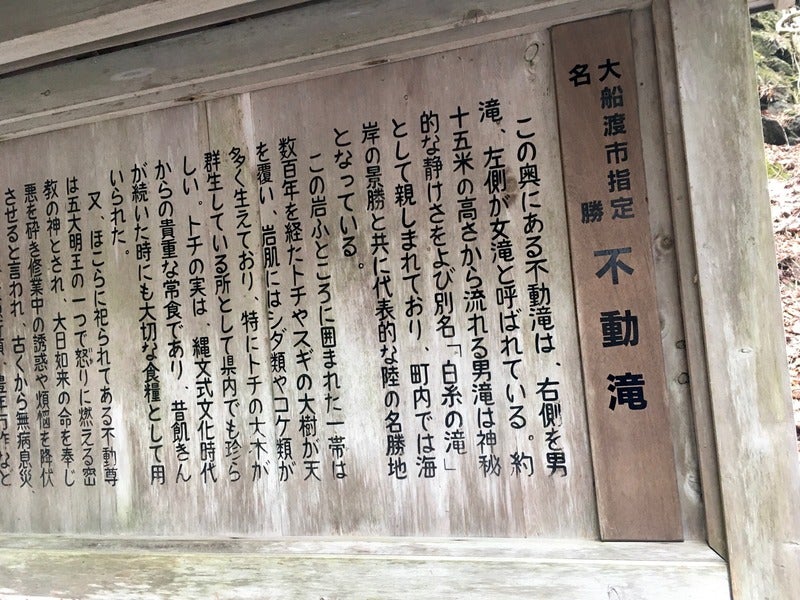 大船渡市指定
名勝
不動滝
この奥にある不動滝は、右側を男
滝、左側が女滝と呼ばれている。約
十五米の高さから流れる男滝は神秘
的な静けさをよび別名「白糸の滝」
として親しまれており、町内では海
岸の景勝と共に代表的な陸の名勝地
となっている。
この岩ふところに囲まれた一帯は
数百年を経たトチやスギの大樹が天
を覆い、岩肌にはシダ類やコケ類が
多く生えており、特にトチの大木が
群生している所として県内でも珍ら
しい。トチの実は、縄文式文化時代
からの貴重な常食であり、昔飢きん
が続いた時にも大切な食糧として用
いられた。
又、ほこらに祀られてある不動尊
は五大明王の一つで怒りに燃える密
教の神とされ、大日如来の命を奉じ
悪を砕き修業中の誘惑や煩悩を降伏
させると言われ、古くから無病息災、
豊年万作など